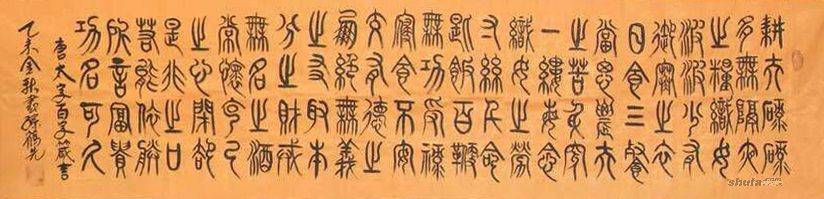 耕夫碌碌
多無隔夜
之糧織女
波波少有
御寒之衣
日食三餐
當思農夫
之苦身穿
一縷每念
織女之勞
寸絲千命
匙飯百鞭
無功受祿
寢食不安
交有德之
朋絕無義
之友取本
分之財戒
無名之酒
常懷克己
之心閉却
是非之口
若能依朕
所言富貴
功名可久
唐太宗百字箴言
乙未金秋書
shufa